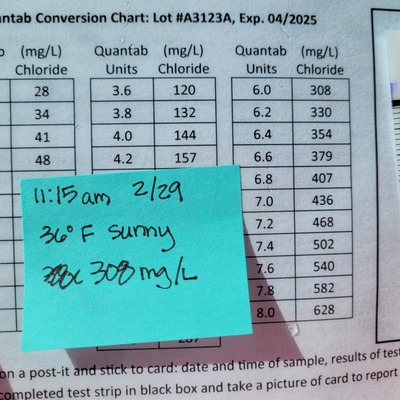 antab Conversion Chart: Lot #A3123A, Exp. 04/2025
(mg/L) Quantab (mg/L) Quantab (mg/L)
Chloride Units Chloride Units Chloride
28 3.6 120 6.0 308
34 3.8 132 6.2 330
41 4.0 144 6.4 354
48 4.2 157 6.6 379
6.8 407
7.0 436
7.2 468
7.4 502
7.6 540
7.8 582
8.0 628
11:15am 2/29
36° F sunny
308 mg/L
on a post-it and stick to card: date and time of sample, results of test
completed test strip in black box and take a picture of card to report